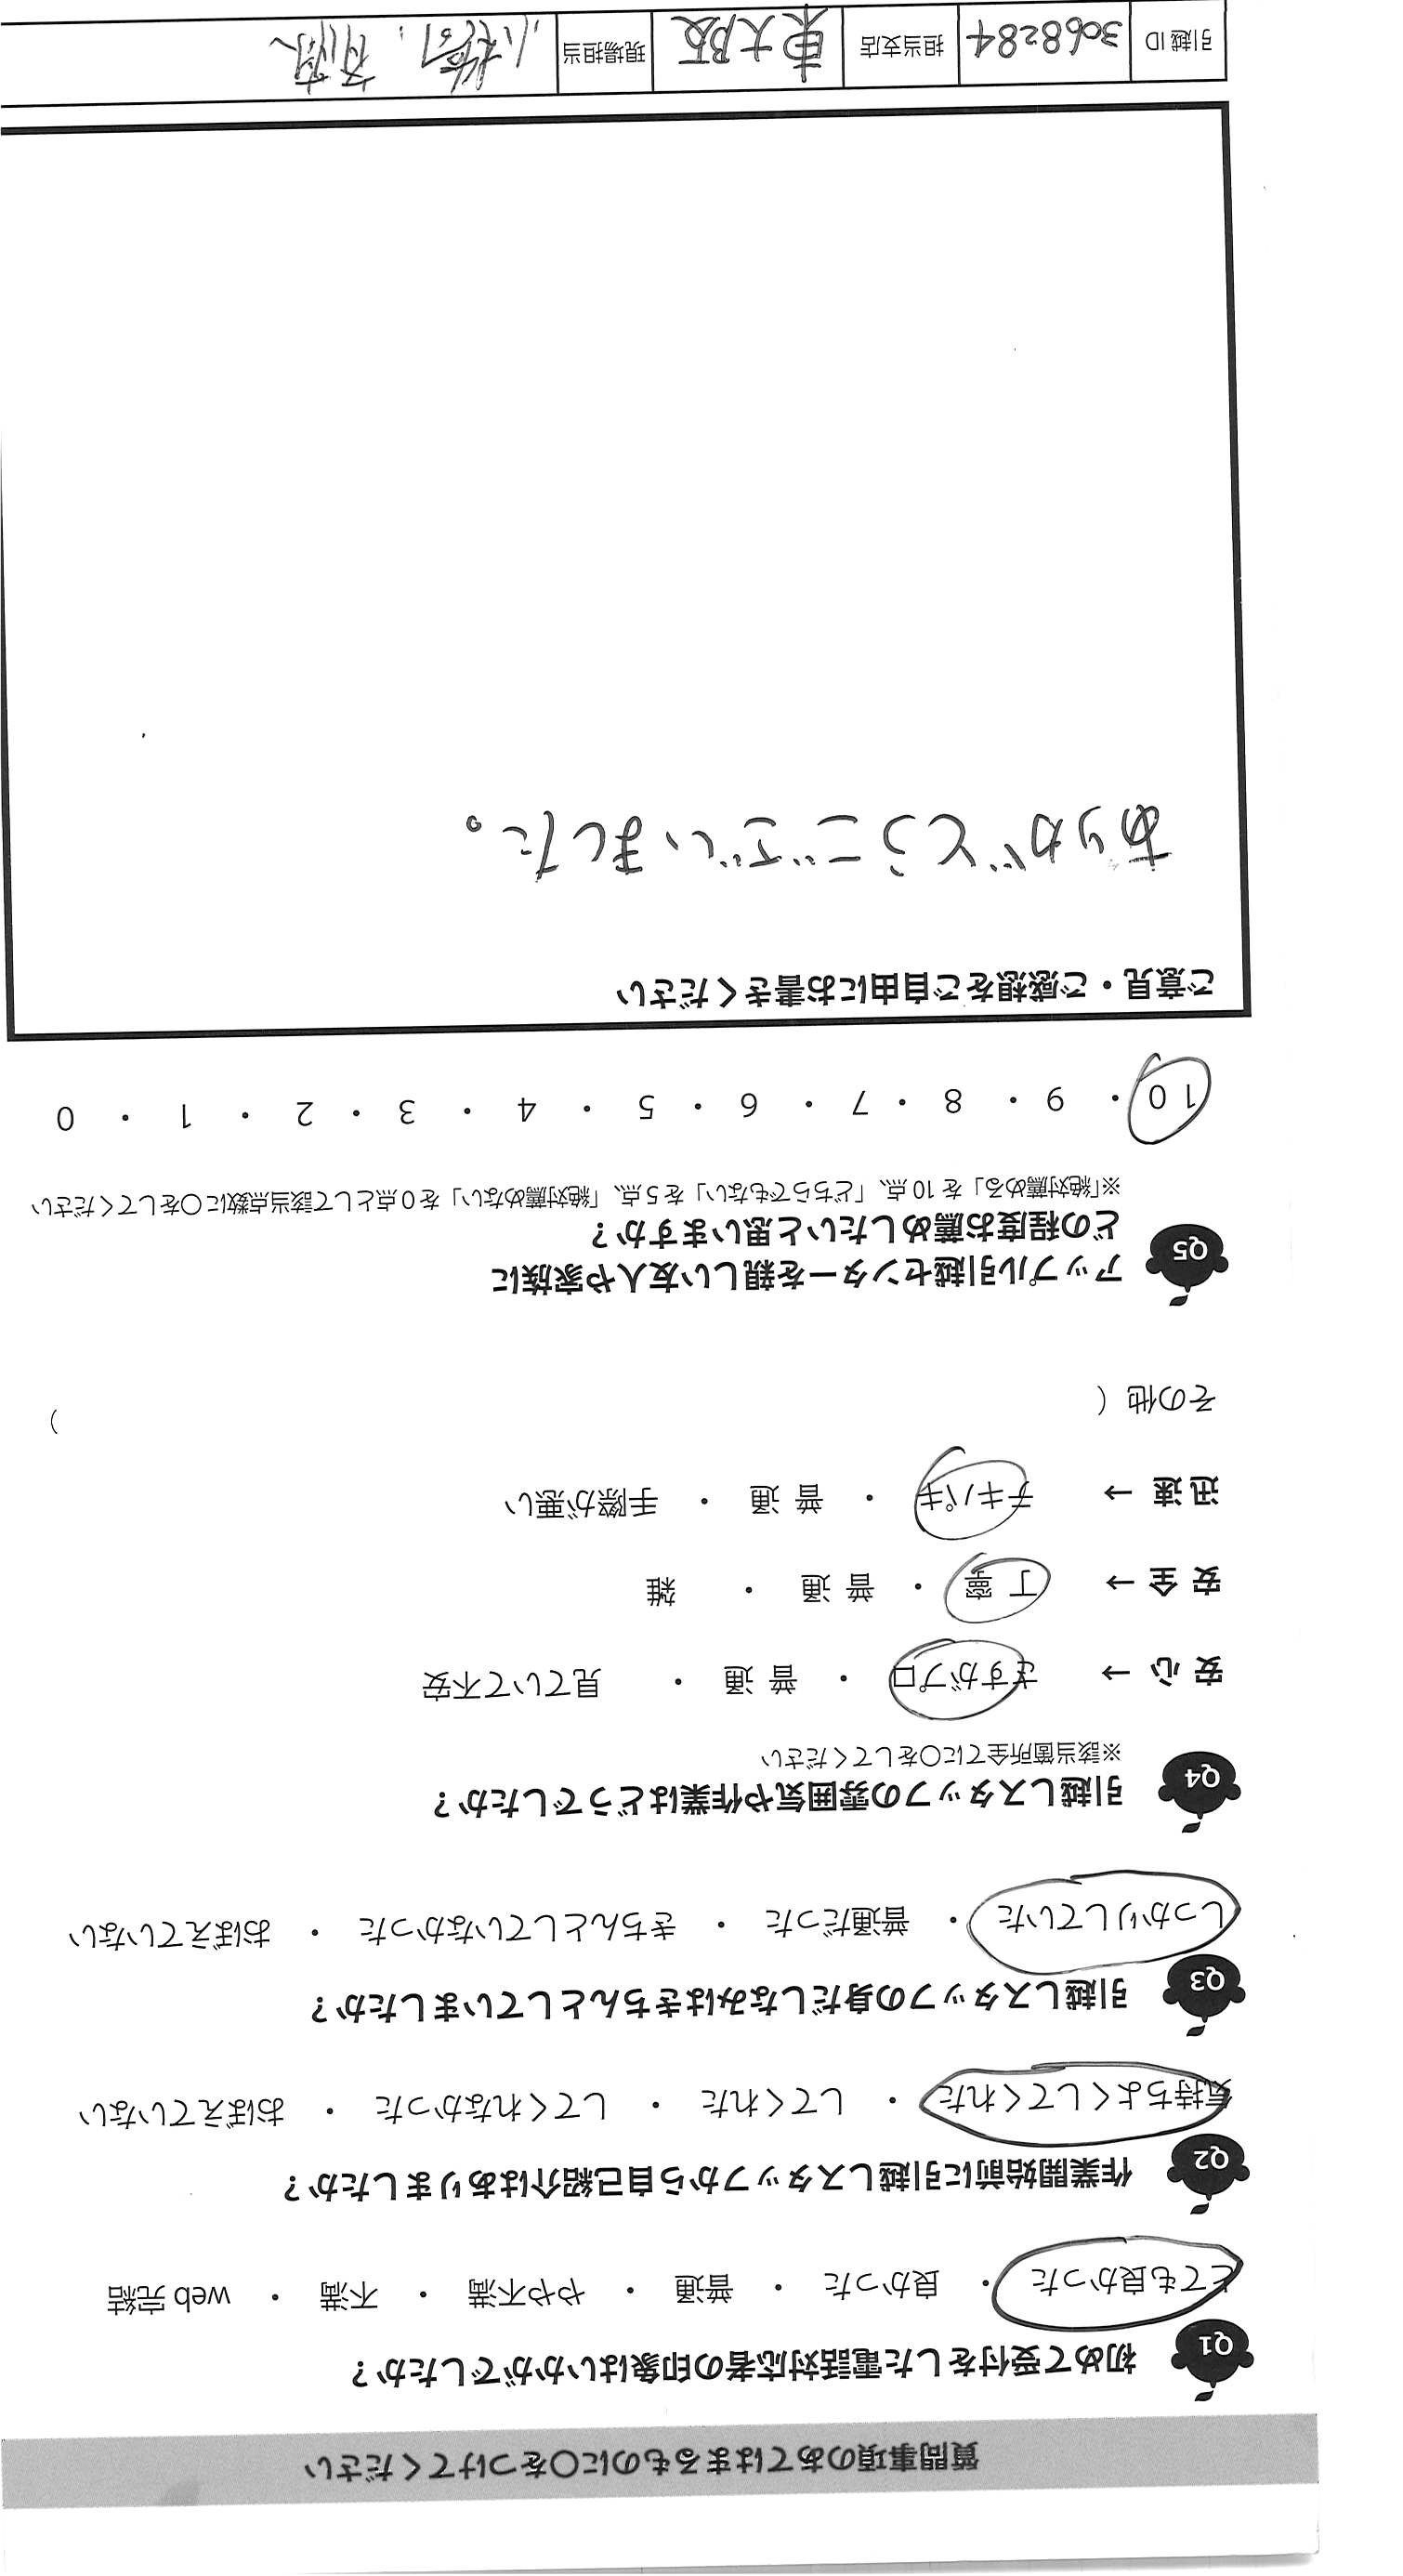 質問事項のあてはまるものに〇をつけてください
Q1 初めて受付をした電話対応者の印象はいかがでしたか?
とても良かった ・ 良かった ・ 普通 ・ やや不満 ・ 不満 ・ web 完結
Q2 作業開始前に引越しスタッフから自己紹介はありましたか?
気持ちよくしてくれた ・ してくれた ・ してくれなかった ・ おぼえていない
Q3 引越しスタッフの身だしなみはきちんとしていましたか?
しっかりしていた ・ 普通だった ・ きちんとしていなかった ・ おぼえていない
Q4 引越しスタッフの雰囲気や作業はどうでしたか?
※該当箇所全てに〇をしてください
安 心 → さすがプロ ・ 普 通 ・ 見ていて不安
安 全 → 丁 寧 ・ 普 通 ・ 雑
迅 速 → テキパキ ・ 普 通 ・ 手際が悪い
その他 ( )
Q5 アップル引越センターを親しい友人や家族に
どの程度お薦めしたいと思いますか?
※「絶対薦める」を 10 点、「どちらでもない」を 5 点、「絶対薦めない」を 0 点として該当点数に〇をしてください
10 ・ 9 ・ 8 ・ 7 ・ 6 ・ 5 ・ 4 ・ 3 ・ 2 ・ 1 ・ 0
ご意見・ご感想をご自由にお書きください
ありがとうございました。
引越 ID 3068284 担当支店 東大阪 現場担当